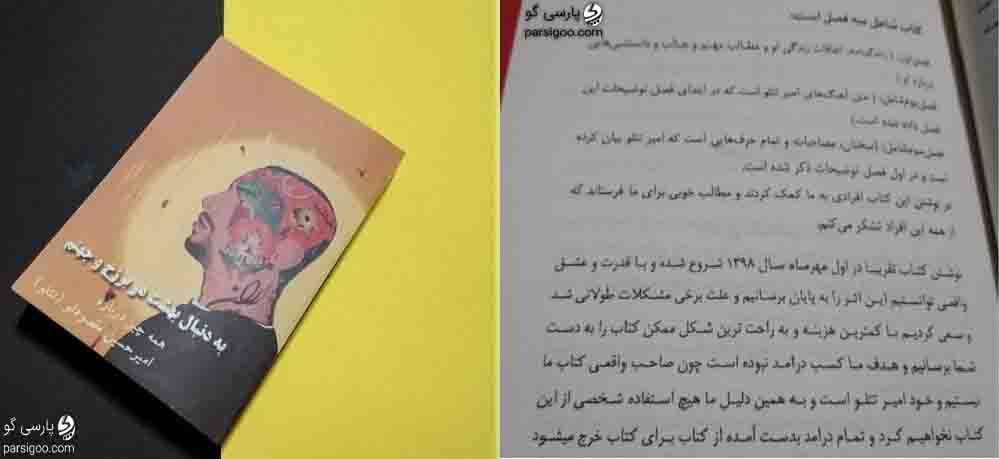 به دنبال بهشت در برزخ و جهنم
همه چیز درباره
امیرحسین مقصودلو (تتلو)
پارسی گو
parsigoo.com
پارسی گو
parsigoo.com
کتاب شامل سه فصل است:
فصل اول: ( زندگینامه، اتفاقات زندگی او و مطالب مهم و جالب و دانستنی‌هایی
درباره او )
فصل دوم شامل: ( متن آهنگ‌های امیر تتلو است که در ابتدای فصل توضیحات این
فصل داده شده است.)
فصل سوم شامل: (سخنان، مصاحبات و تمام حرف‌هایی است که امیر تتلو بیان کرده
است و در اول فصل توضیحات ذکر شده است.
در نوشتن این کتاب افرادی به ما کمک کردند و مطالب خوبی برای ما فرستاند که
از همه این افراد تشکر می‌کنم.
نوشتن کتاب تقریبا در اول مهرماه سال ۱۳۹۸ شروع شده و با قدرت و عشق
واقعی توانستیم این اثر را به پایان برسانیم و علت برخی مشکلات طولانی شد.
و سعی کردیم با کمترین هزینه و به راحت ترین شکل ممکن کتاب را به دست
شما برسانیم و هدف ما کسب درامد نبوده است چون صاحب واقعی کتاب ما
نیستیم و خود امیر تتلو است و به همین دلیل ما هیچ استفاده شخصی از این
کتاب نخواهیم کرد و تمام درامد بدست آمده از کتاب برای کتاب خرج میشود